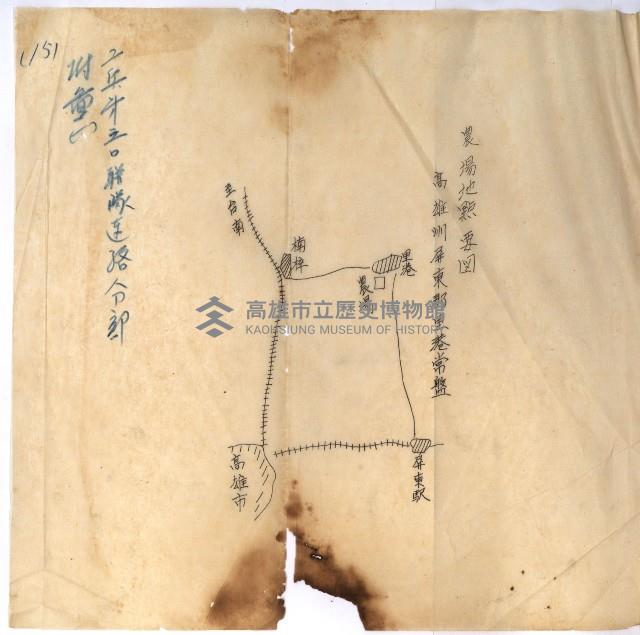 農場地點要図
高雄州屏東郡里港常盤
里港
農場
楠梓
至台南
屏東駅
高雄市
工兵斗三〇聯隊連絡分部
附重(一)
(151
高雄市立歷史博物館
KAOHSIUNG MUSEUM OF HISTORY